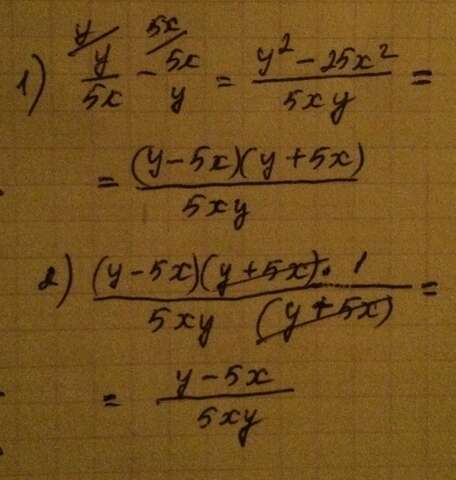 1) y/5x (y/ - 5x/y (5x/ = y² - 25x² / 5xy =
= (y-5x)(y+5x) / 5xy
2) (y-5x)(y+5x) · 1 / 5xy (y+5x) =
= y-5x / 5xy